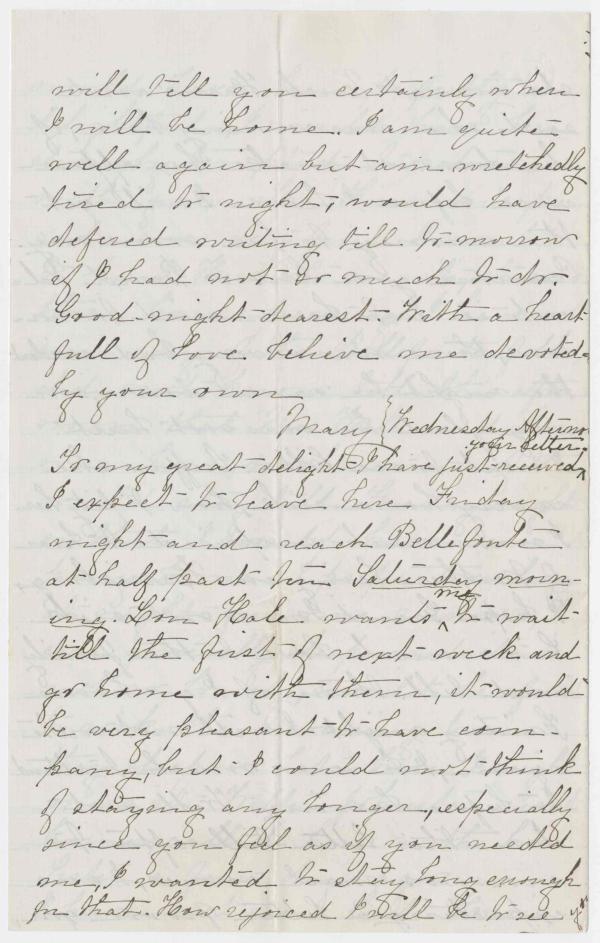 will tell you certainly when
I will be home. I am quite
well again but am wretchedly
tired to night, would have
defered writing till to-morrow
if I had not so much to do.
Good-night dearest. With a heart
full of love believe me devoted-
ly your own
Mary { Wednesday Afterno
your letter
To my great delight I have just received ^
I expect to leave here Friday
night and reach Bellefonte
at half past ten Saturday morn-
me
ing. Lou Hale wants ^ to wait
till the first of next week and
go home with them, it would
be very pleasant to have com-
pany, but I could not think
of staying any longer, especially
since you feel as if you needed
me, I wanted to stay long enough
for that. How rejoiced I will be to see